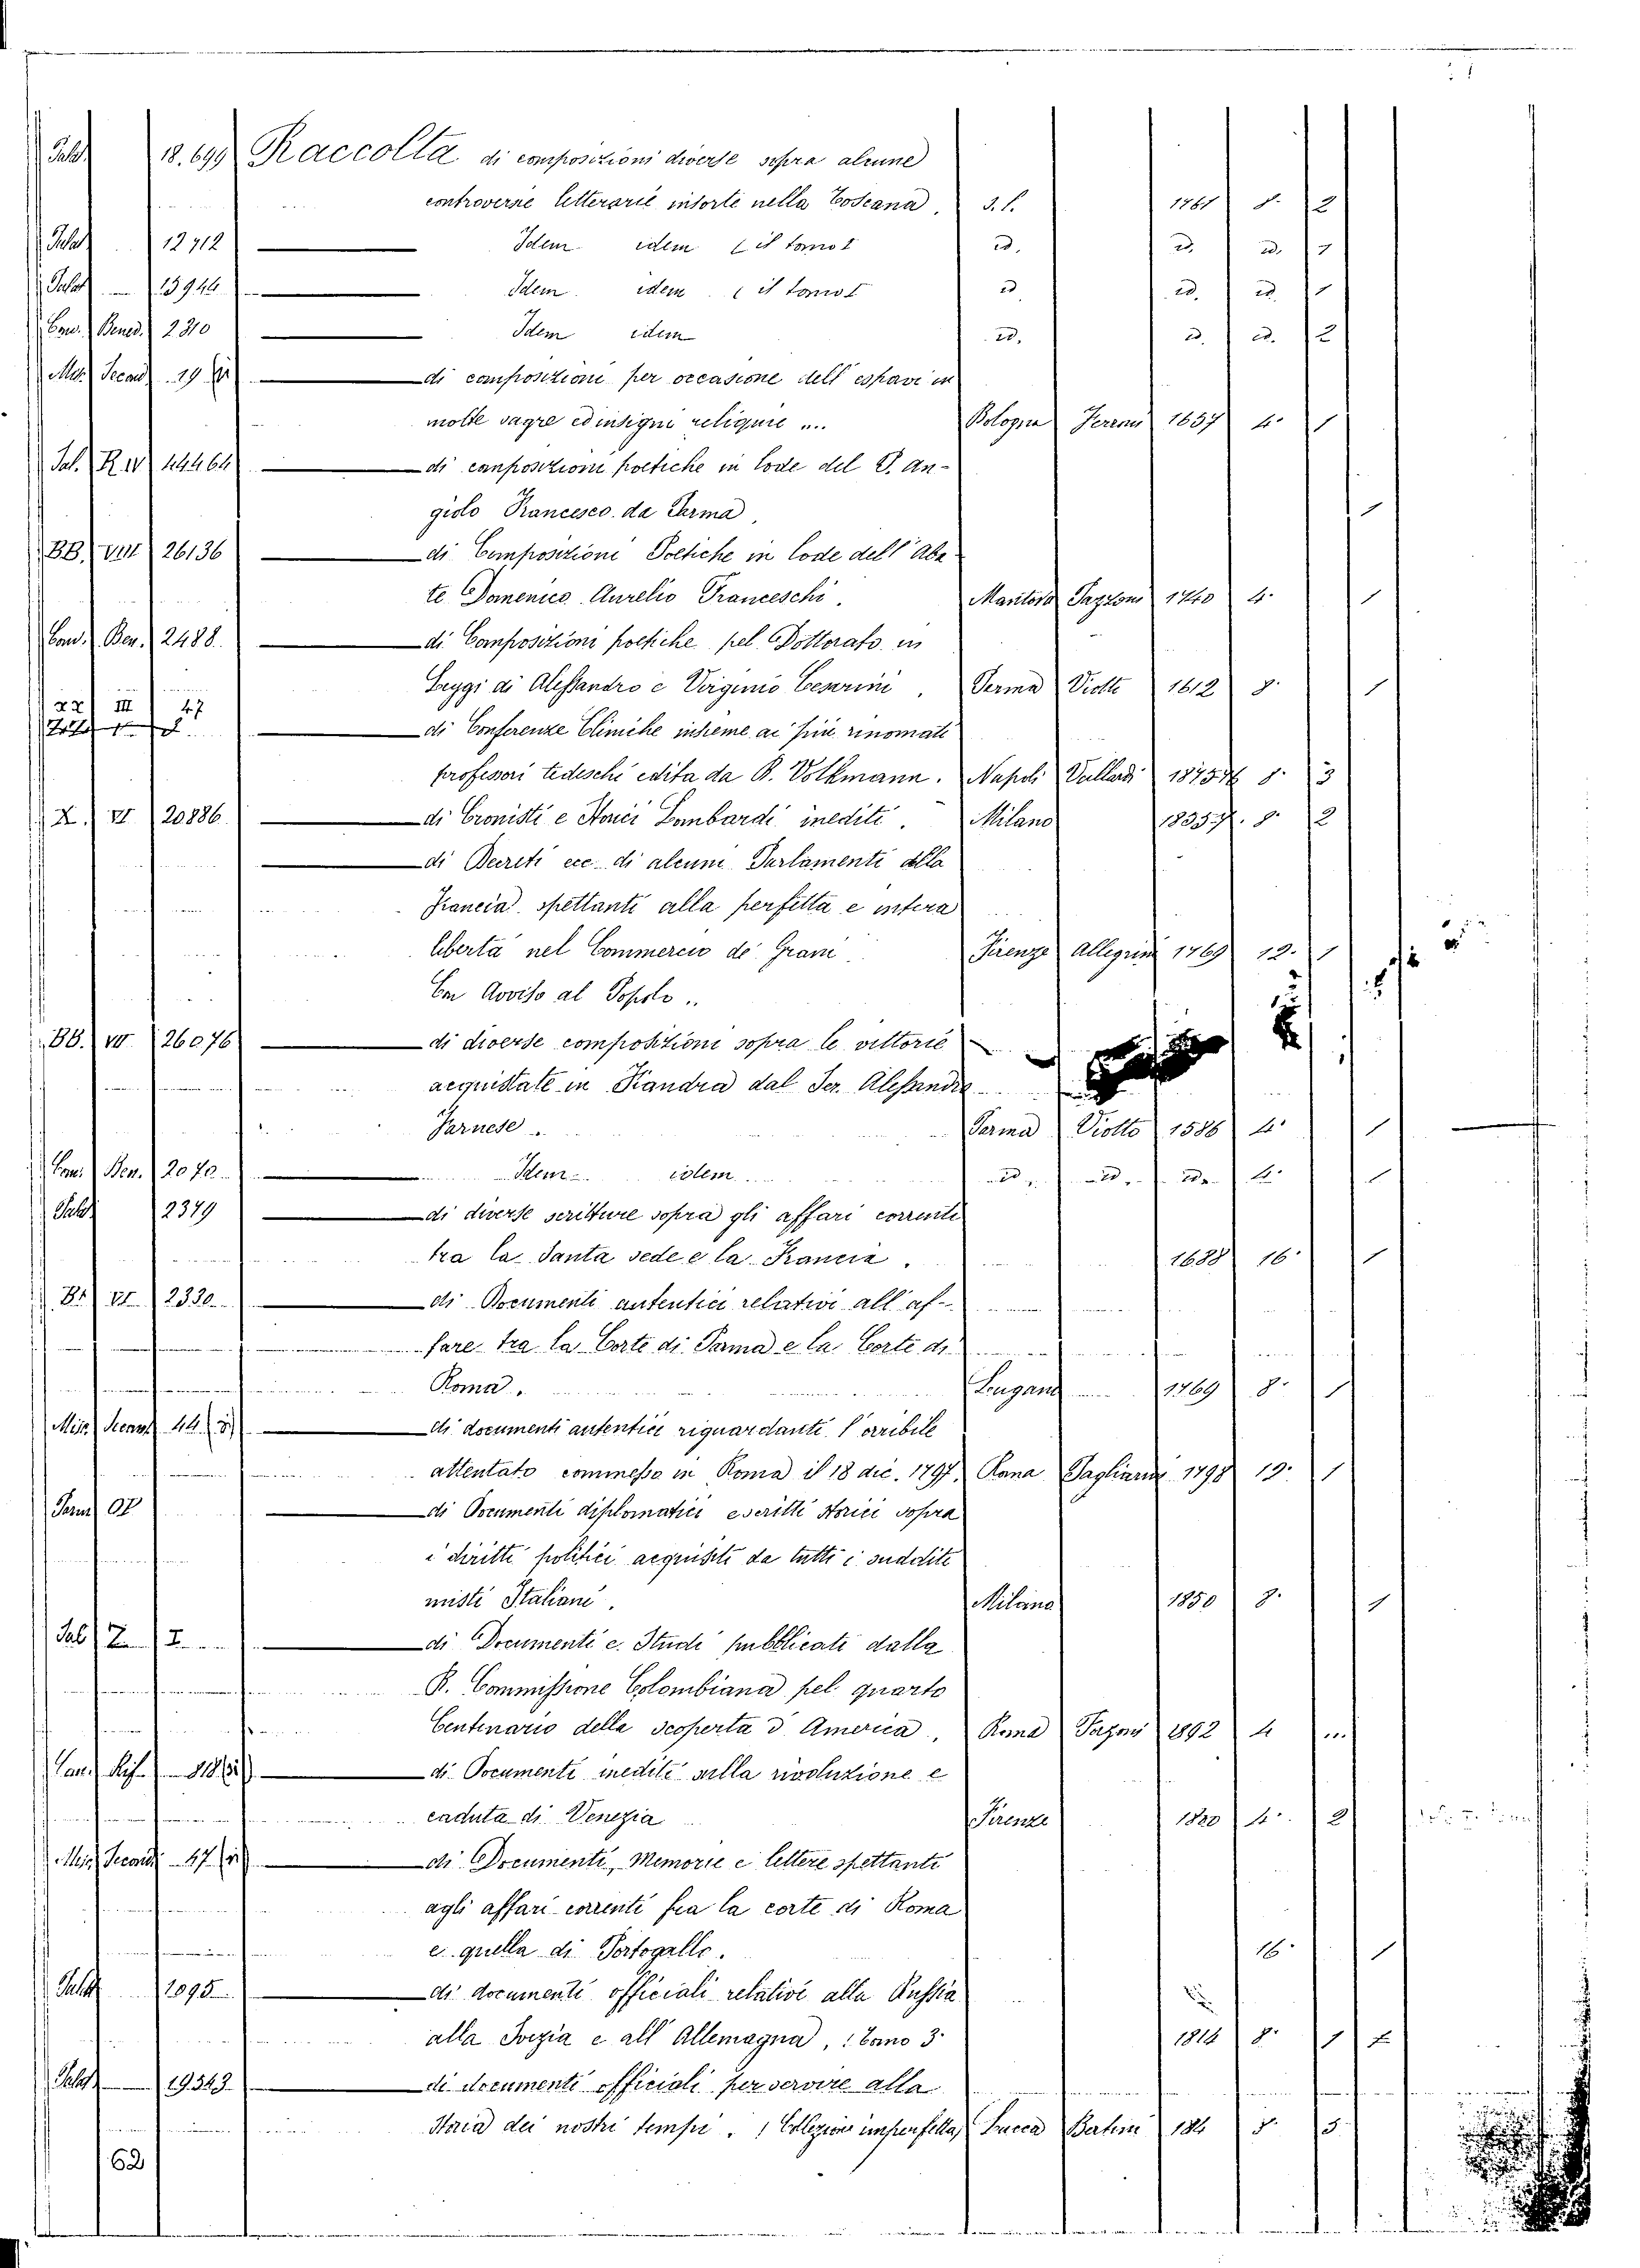 18.699 Raccolta di composizioni diverse sopra alcune
controversie letterarie insorte nella Toscana. s. l. 1761 8. 2
12712 Idem idem (il tomo 1 id. id. id. 1
13944 Idem idem (il tomo 1 id id. id. 1
Conv. Bened. 2310 Idem idem id. id. id. 2
Misc Second 19 di composizioni per occasione dell'esporsi in
molte sagre ed insigni reliquie ... Bologna 1657 4. 1
Sal. R IV 44464 di composizioni poetiche in lode del P. An-
giolo Francesco da Parma. 1
BB. VIII 26136 di Composizioni Poetiche in lode dell'Aba
te Domenico Aurelio Franceschi. Mantova Pazzoni 1740 4. 1
Conv. Ben. 2488 di Composizioni poetiche pel Dottorato in
Leggi di Alessandro e Virginio Cesarini. Parma Viotti 1612 8. 1
XXI III 47 di Conferenze Cliniche insieme ai più rinomati
professori tedeschi edita da R. Volkmann. Napoli Vallardi 8. 3
X. VI 20886 di Cronisti e Storici Lombardi inediti. Milano 8. 2
di Decreti ecc. di alcuni Parlamenti della
Francia spettanti alla perfetta e intera
libertà nel Commercio de' Grani Firenze Allegrini 1769 12. 1
Con Avviso al Popolo..
BB. VII 26076 di diverse composizioni sopra le vittorie
acquistate in Fiandra dal Ser. Alessandro
Farnese. Parma Viotto 1586 4. 1
Conv. Ben. 2070 Idem idem id. id. id. 4. 1
2379 di diverse scritture sopra gli affari correnti
tra la Santa sede e la Francia. 1688 16. 1
VI 2330 di Documenti autentici relativi all'af-
fare tra la Corte di Parma e la Corte di
Roma. Lugano 1769 8. 1
Misc Second 44 di documenti autentici riguardanti l'orribile
attentato commesso in Roma il 18 dic. 1797. Roma Pagliarini 1798 12. 1
di Documenti diplomatici e scritti storici sopra
i diritti politici acquisiti da tutti i sudditi
misti Italiani. Milano 1850 8. 1
Sal Z I di Documenti e Studi pubblicati dalla
R. Commissione Colombiana pel quarto
Centenario della scoperta d'America. Roma 1892 4 ...
di Documenti inediti sulla rivoluzione e
caduta di Venezia Firenze 4. 2
Misc Second 47 di Documenti, Memorie e lettere spettanti
agli affari correnti fra la corte di Roma
e quella di Portogallo. 16. 1
1095 di documenti officiali relativi alla Russia
alla Svezia e all'Allemagna, Tomo 3. 1814 8. 1
19343 di documenti officiali per servire alla
Storia dei nostri tempi. (Collezione imperfetta) Lucca Bertini 8. 5
62